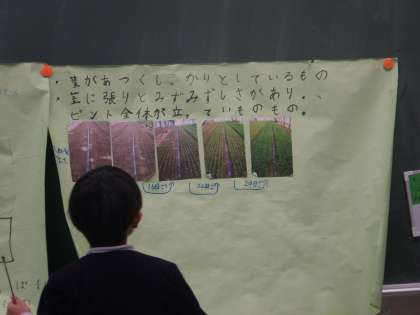 ・葉があつくしっかりとしているもの
・茎に張りとみずみずしさがあり、
ピント全体が立っているもの。
16日ごろ
22日ごろ
29日ごろ